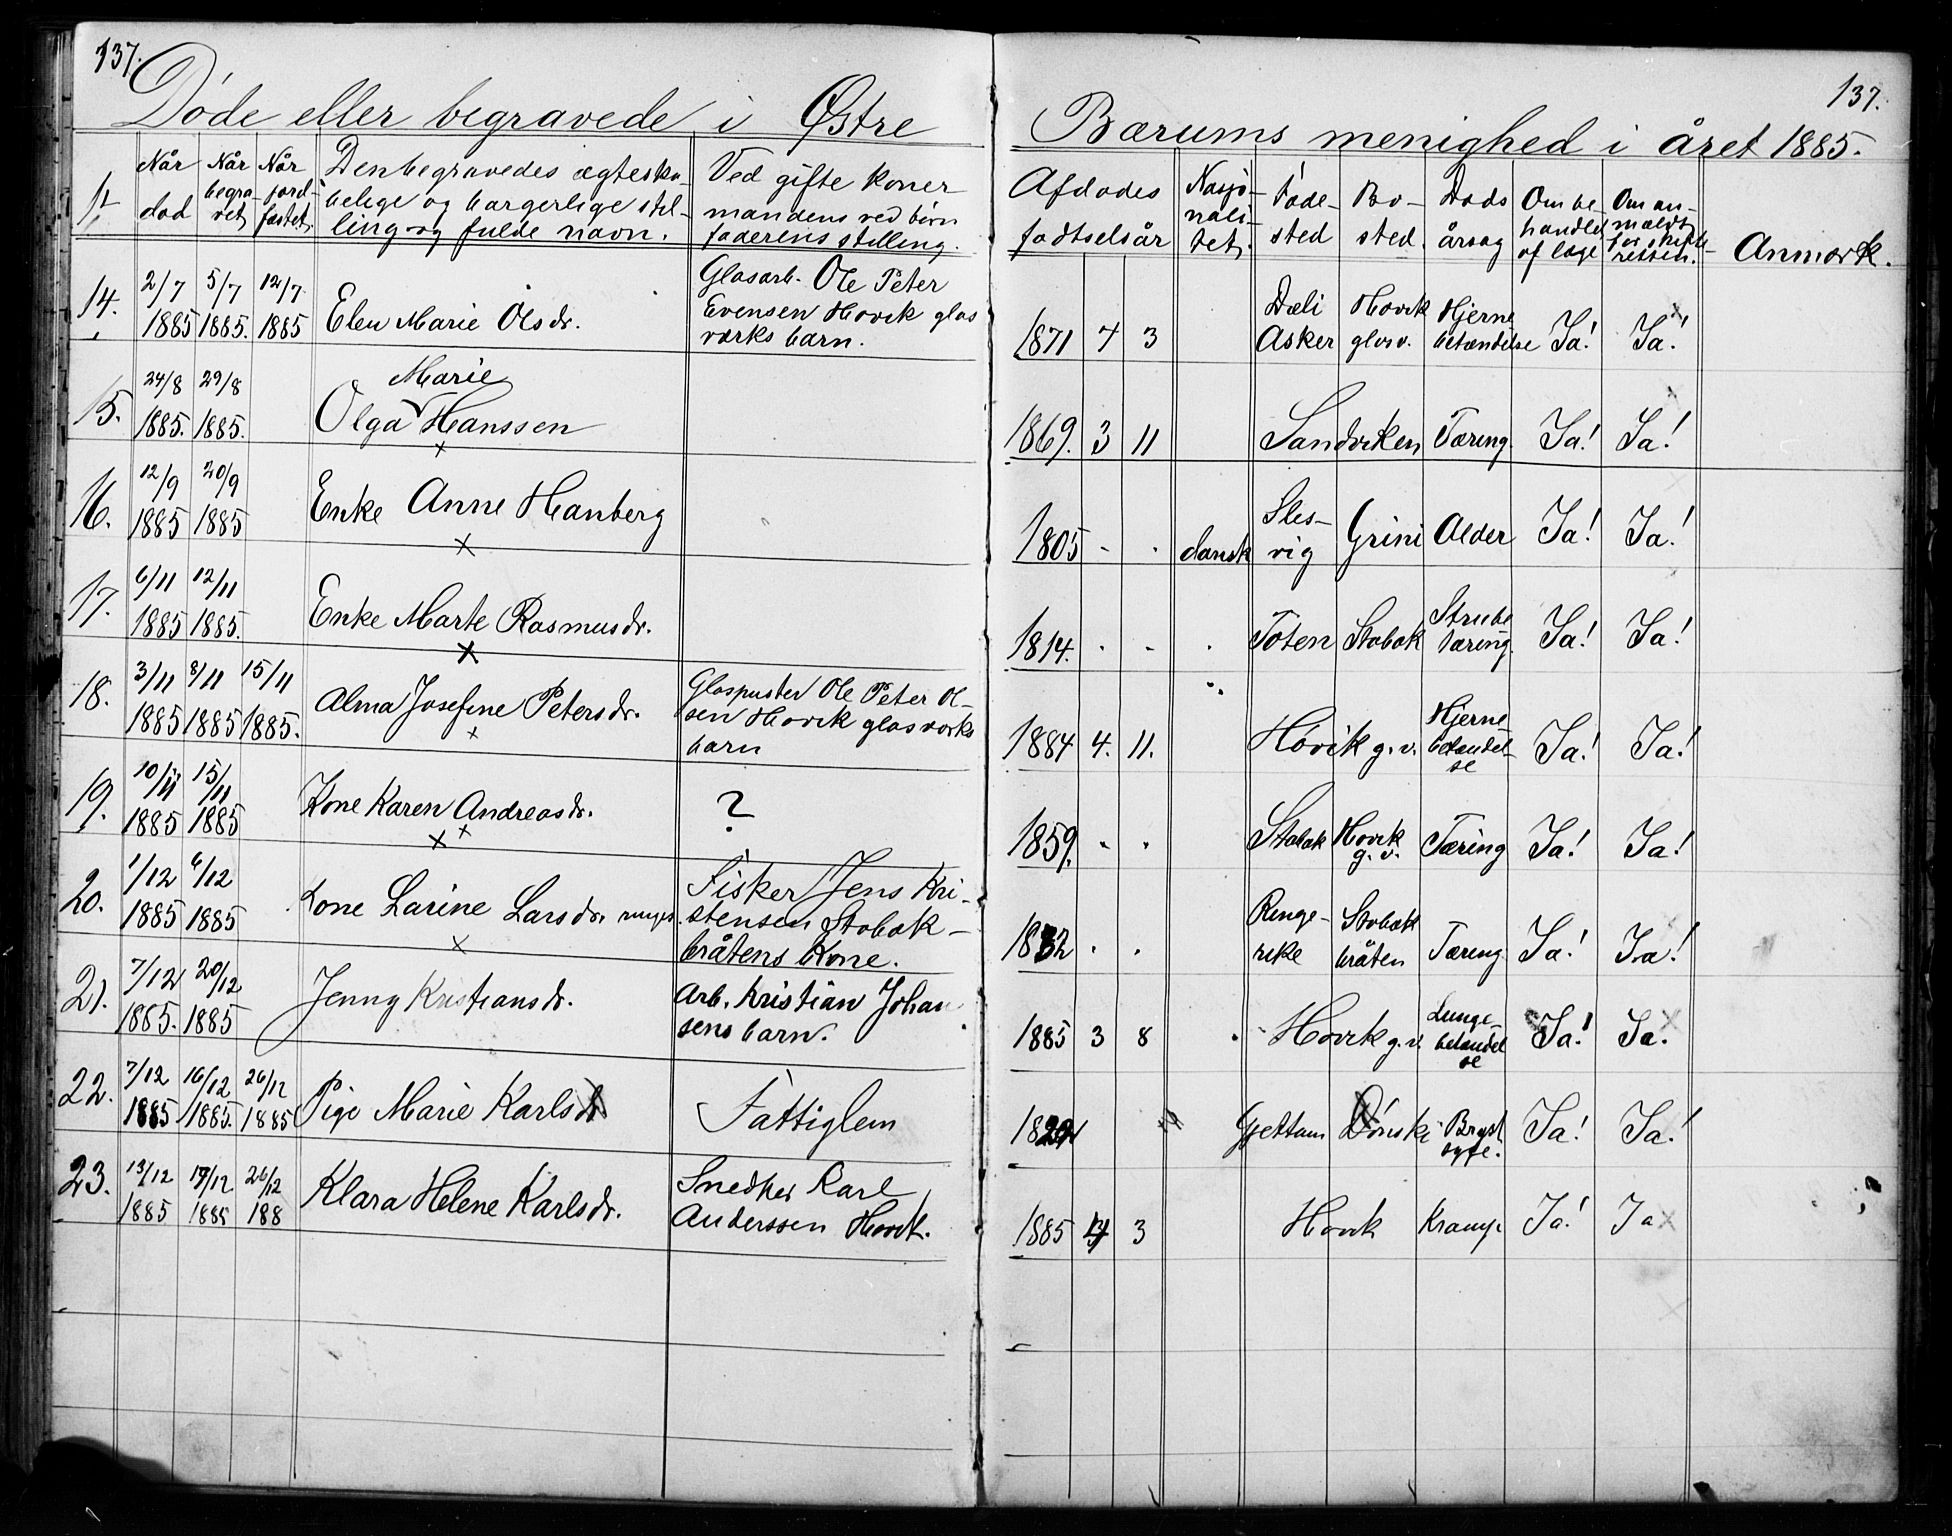 137.
137.
Døde eller begravede i Østre
Bærums menighed i året 1885.
Når død
Når begravet
Når jordfæstet
Den begravedes ægteska-
belige og borgerlige stil-
ling og fulde navn.
Ved gifte koner
mandens ved børn
faderens stilling.
Afdødes
fødselsår
Nasjo-
nali-
tet.
Føde-
sted
Bo-
sted.
Døds
årsag
Om be
handlet
af læge
Om an-
mældt
for skifte-
retten.
Anmærk.
14. 2/7 1885 5/7 1885. 12/7 1885 Elen Marie Olsdr.
Glasarb. Ole Peter
Evensen Høvik glas
værks barn.
1871 7 3 Dæli Asker Høvik glasv. Hjerne betændelse Ja! Ja!
15. 24/8 1885. 29/8 1885. Olga Marie Hanssen
1869. 3 11 Sandviken Tæring. Ja! Ja!
16. 12/9 1885 20/9 1885 Enke Anne Hanberg
1805 - . dansk Sles-
vig Grini Alder Ja! Ja!
17. 6/11 1885 12/11 1885. Enke Marte Rasmusdr.
1814. . - . Toten Stabæk Strube tæring. Ja! Ja!
18. 3/11 1885 8/11 1885 15/11 1885. Alma Josefine Petersdr.
Glaspuster Ole Peter Ol-
sen Høvik glasværks
barn
1884 4. 11. Høvik g.v. Hjerne betændel-
se Ja! Ja!
19. 10/11 1885 15/11 1885 Kone Karen Andreasdr. ?
1859. . . Stabæk Høvik g.v. Tæring Ja! Ja!
20. 1/12 1885 6/12 1885 Kone Larine Larsdr.
Fisker Jens Kri-
stensen Stabæk-
bråtens kone.
1832 . . Ringe-
rike Stabæk bråten Tæring Ja! Ja!
21. 7/12 1885. 20/12 1885 Jenny Kristiansdr.
Arb. Kristian Johan
sens barn.
1885 3 8 Høvik g.v. Lunge-
betændel
se Ja! Ja.
22. 7/12 1885 16/12 1885. 26/12 1885 Pige Marie Karlsd
Fattiglem
Gjettum Dønski Bryst
syge. Ja! Ja!
23. 13/12 1885 19/12 1885 26/12 188 Klara Helene Karlsdr.
Snedker Karl
Anderssen Høvik.
1885 3 Høvik Krampe Ja! Ja